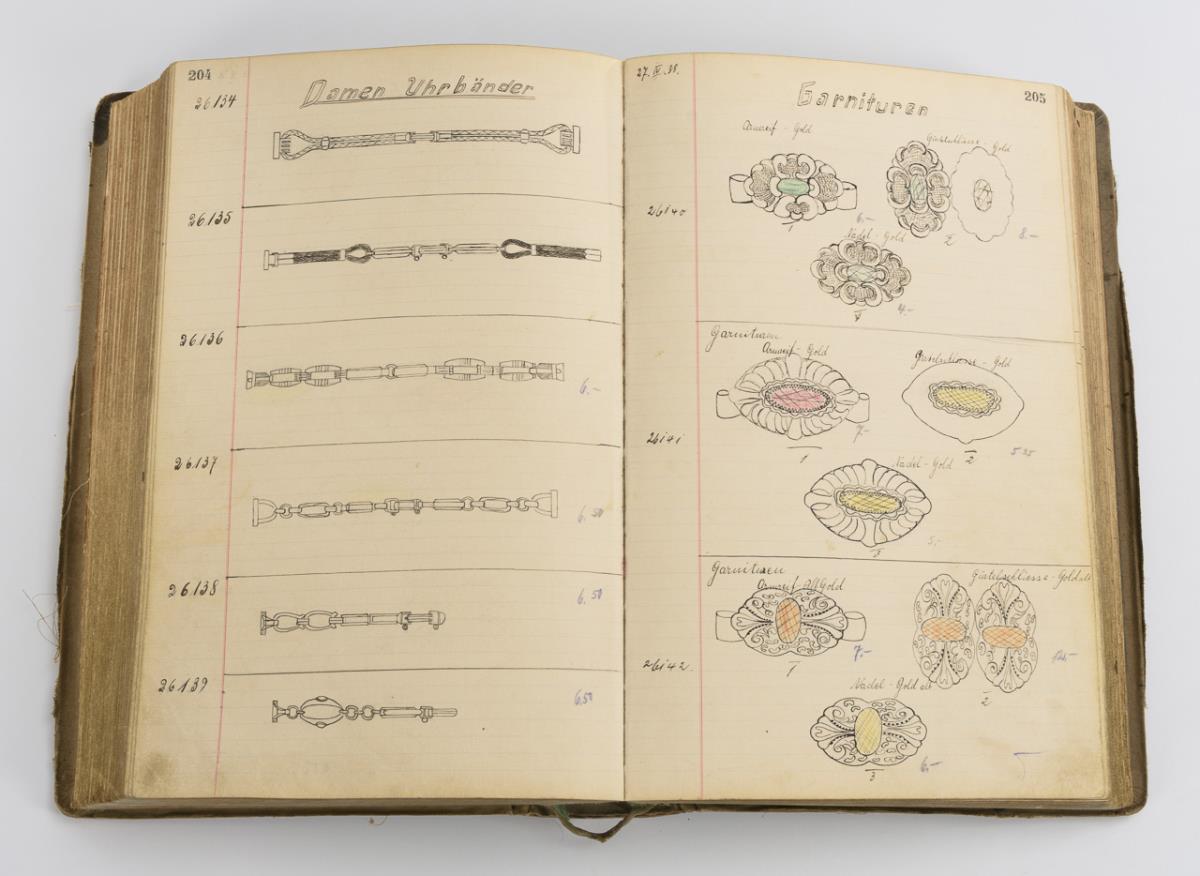 204
Damen Uhrbänder
26134
26135
26136
6.-
26137
6.50
26138
6.50
26139
6.50
27.IV.38.
205
Garnituren
Armreif - Gold
Gürtelschliesse - Gold
26140
6.-
1
2
8.-
Nadel - Gold
4.-
3
Garnituren
Armreif - Gold
Gürtelschliesse - Gold
26141
7.-
1
2
Nadel - Gold
5.-
3
Garnituren
Armreif - Alt Gold
Gürtelschliesse - Gold alt
26142.
7.-
1
2
Nadel - Gold alt
6.-
3